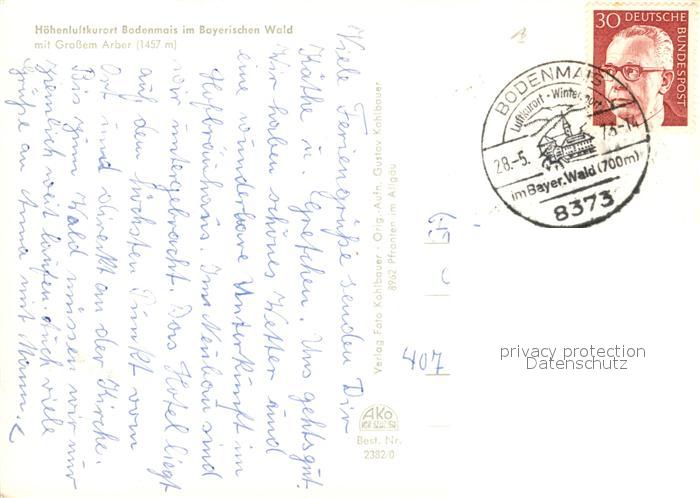 Höhenluftkurort Bodenmais im Bayerischen Wald
mit Großem Arber (1457 m)
Viele Feriengrüße senden Dir
Käthe u. Gretchen. Uns gehts gut.
Wir haben schönes Wetter und
eine wunderbare Unterkunft im
Hofbräuhaus. Im Neubau sind
wir untergebracht. Das Hotel liegt
auf dem höchsten Punkt vom
Ort und direkt an der Kirche.
Bis zum Wald müssen wir nur
ziemlich weit laufen. Auch viele
Grüße an Anna mit Mann.
Verlag Foto Kohlbauer - Orig.-Aufn. Gustav Kohlbauer
8962 Pfronten im Allgäu
AKO
Best. Nr.
2382/0
30 DEUTSCHE
BUNDESPOST
BODENMAIS
Luftkurort · Wintersport
28.-5.
73-14
im Bayer. Wald (700m)
8373
407
privacy protection
Datenschutz